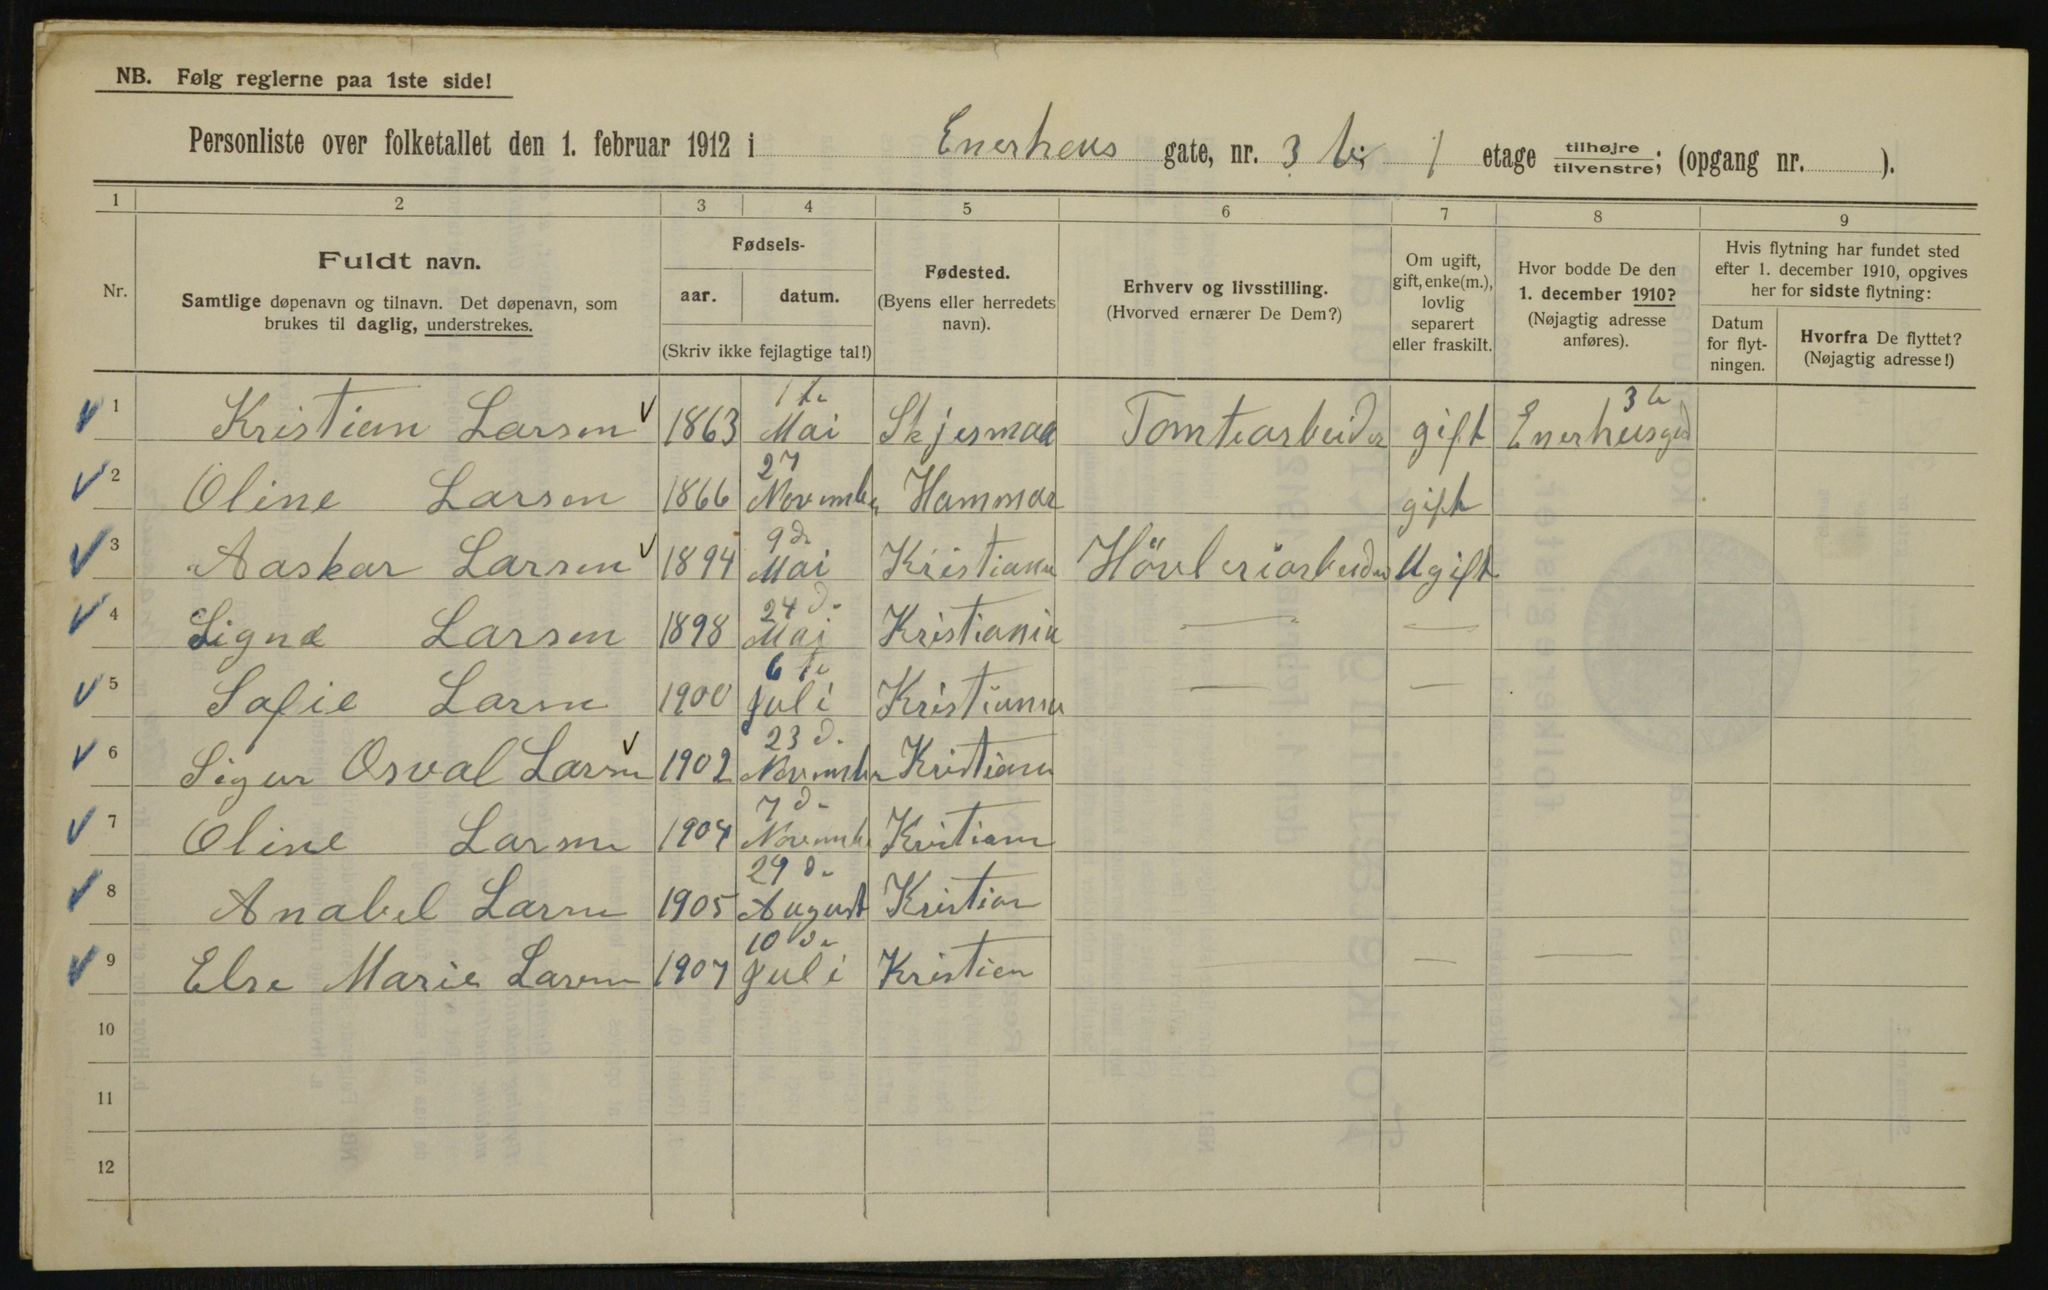 NB. Følg reglerne paa 1ste side!
Personliste over folketallet den 1. februar 1912 i Enerheus gate, nr. 3 b; 1 etage tilhøjre/tilvenstre; (opgang nr. ).
1 2 3 4 5 6 7 8 9
Nr.
Fuldt navn.
Samtlige døpenavn og tilnavn. Det døpenavn, som brukes til daglig, understrekes.
Fødsels-
aar. datum.
(Skriv ikke fejlagtige tal!)
Fødested.
(Byens eller herredets navn).
Erhverv og livsstilling.
(Hvorved ernærer De Dem?)
Om ugift, gift, enke(m.), lovlig separert eller fraskilt.
Hvor bodde De den 1. december 1910?
(Nøjagtig adresse anføres).
Hvis flytning har fundet sted efter 1. december 1910, opgives her for sidste flytning:
Datum for flyt-ningen.
Hvorfra De flyttet?
(Nøjagtig adresse!)
1 Kristian Larsen 1863 1 te Mai Tomtearbeider gift Enerheusgd 3 b
2 Oline Larsen 1866 27 November Hammar gift
3 Aaskar Larsen 1894 9 d. Mai Kristiania Hövleriarbeider Ugift
4 Signe Larsen 1898 24 d. Mai Kristiania — —
5 Sofie Larsen 1900 6 te Juli Kristiania — —
6 Sigur Osval Larsen 1902 23 d. November Kristiania
7 Oline Larsen 1904 7 d. November Kristiania
8 Anabel Larsen 1905 29 d. August Kristian
9 Else Marie Larsen 1907 10 d. Juli Kristian — — —
10
11
12